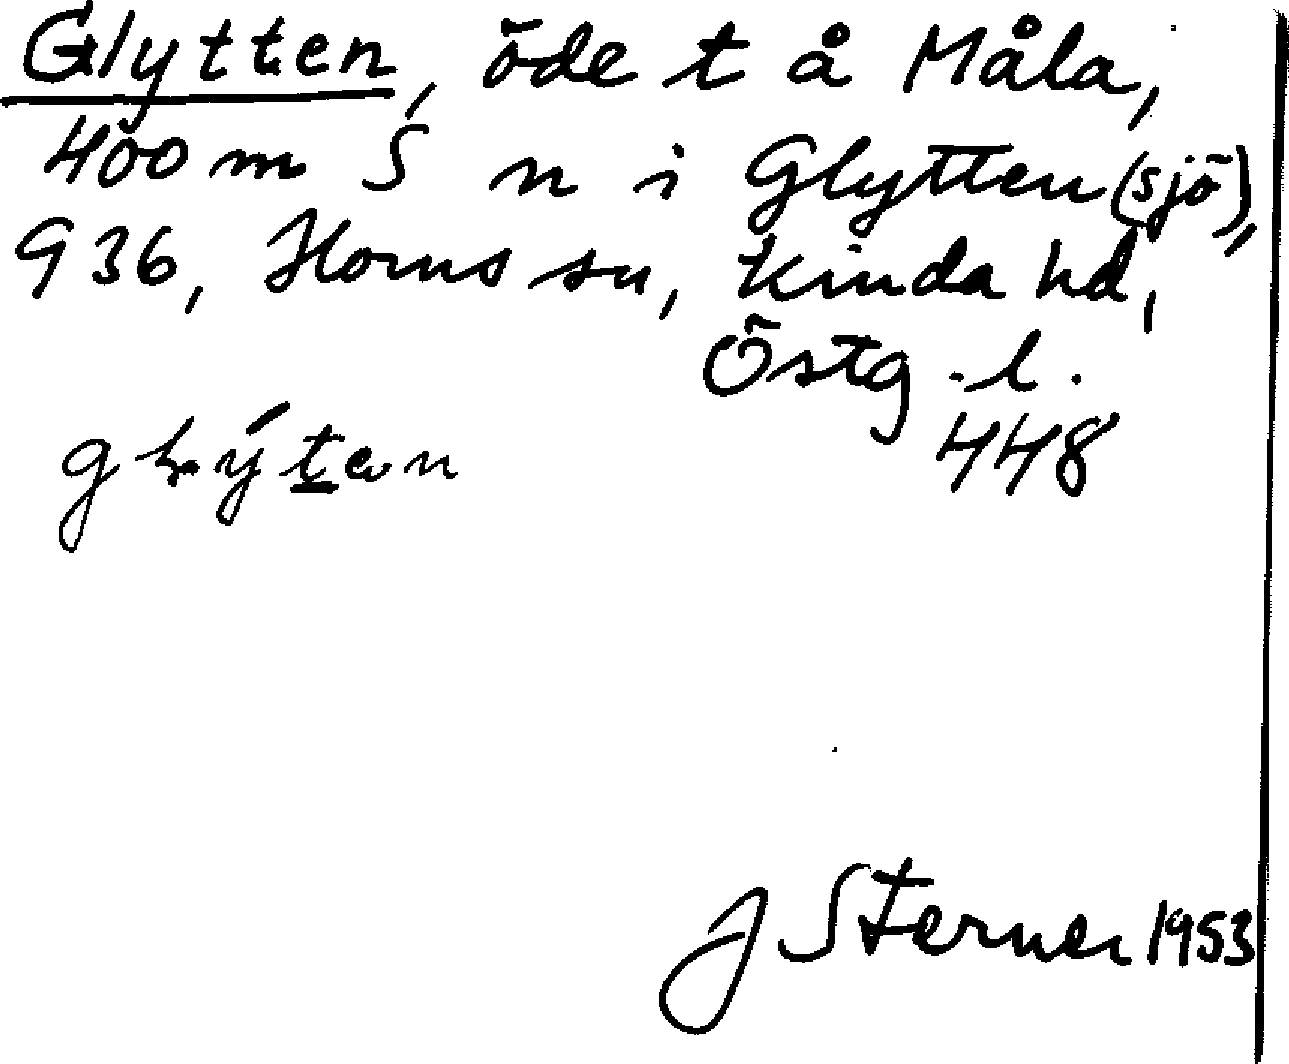 Glytten, öde t å Måla,
400 m S n i Glytten (sjö),
936, Horns sn, Kinda hd,
Östg. l.
448
J Sterner 1953